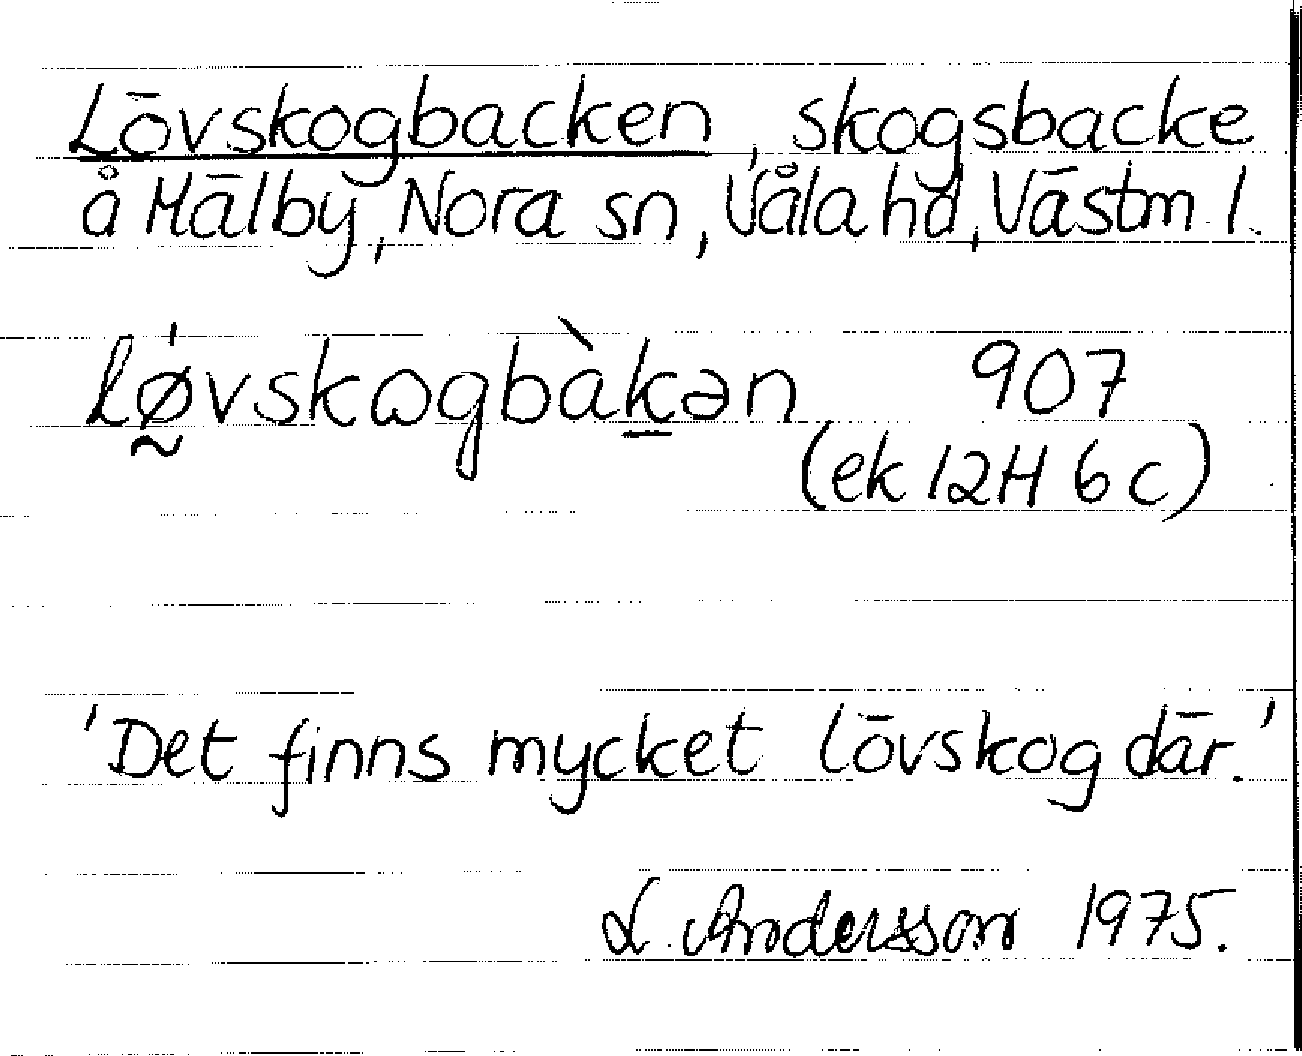 Lövskogbacken, skogsbacke
å Mälby, Nora sn, Våla hd, Västm l.
lǿ̰vskɷgbàk̲ən 907
(ek 12H 6c)
'Det finns mycket lövskog där.'
L. Andersson 1975.